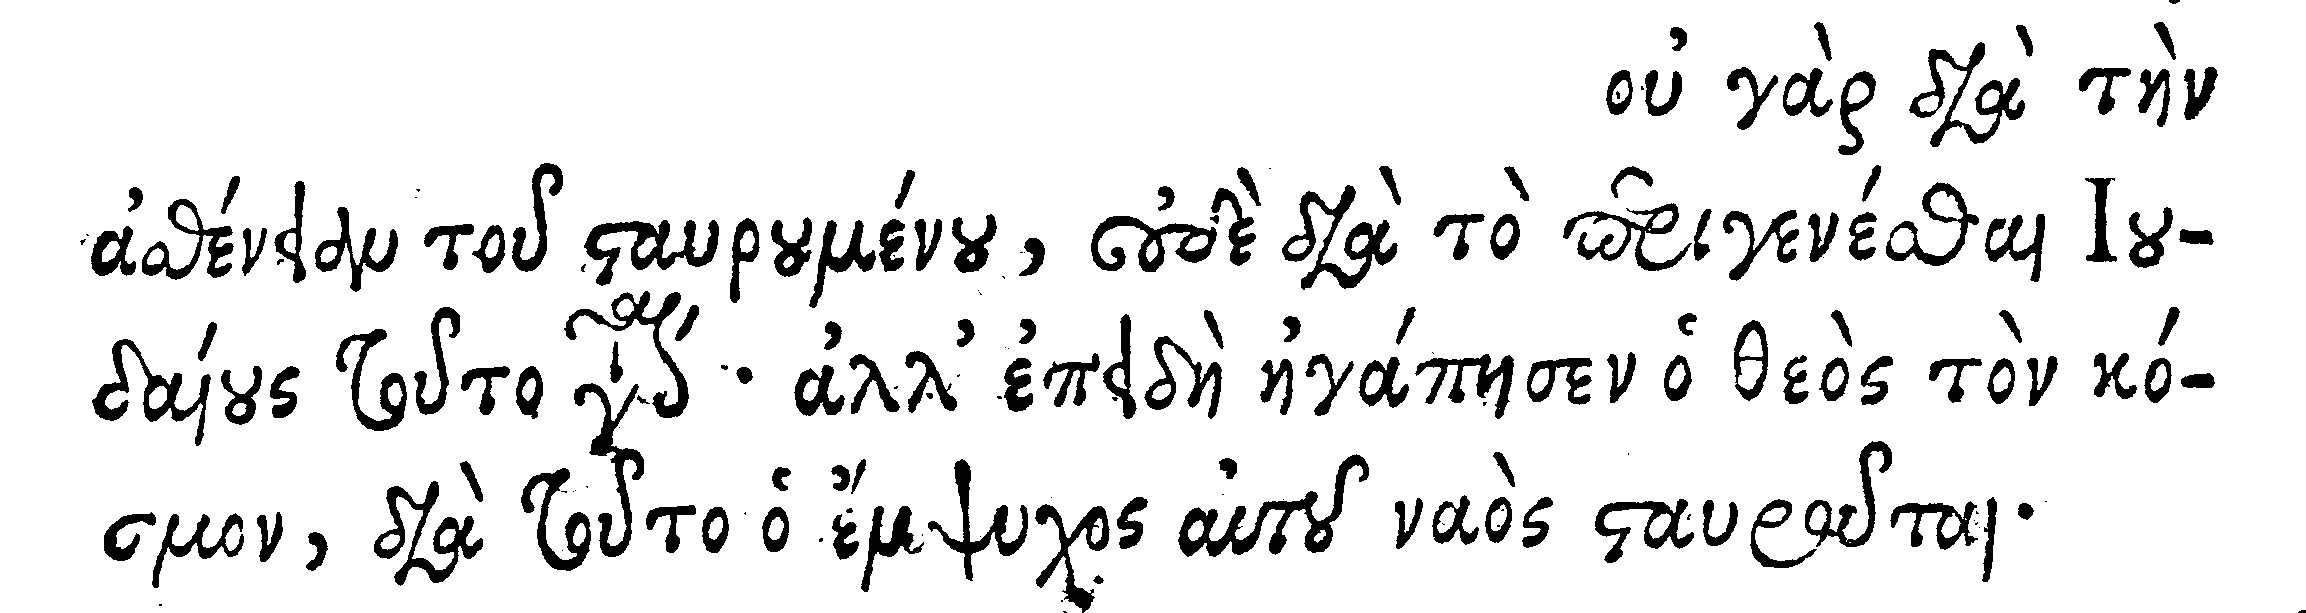 οὐ γὰρ διὰ τὴν
ἀσθένειαν τοῦ σταυρουμένου, οὐδὲ διὰ τὸ περιγενέσθαι Ιου-
δαίους τοῦτο · ἀλλ’ ἐπειδὴ ἠγάπησεν ὁ θεὸς τὸν κό-
σμον, διὰ τοῦτο ὁ ἔμψυχος αὐτοῦ ναὸς σταυροῦται·